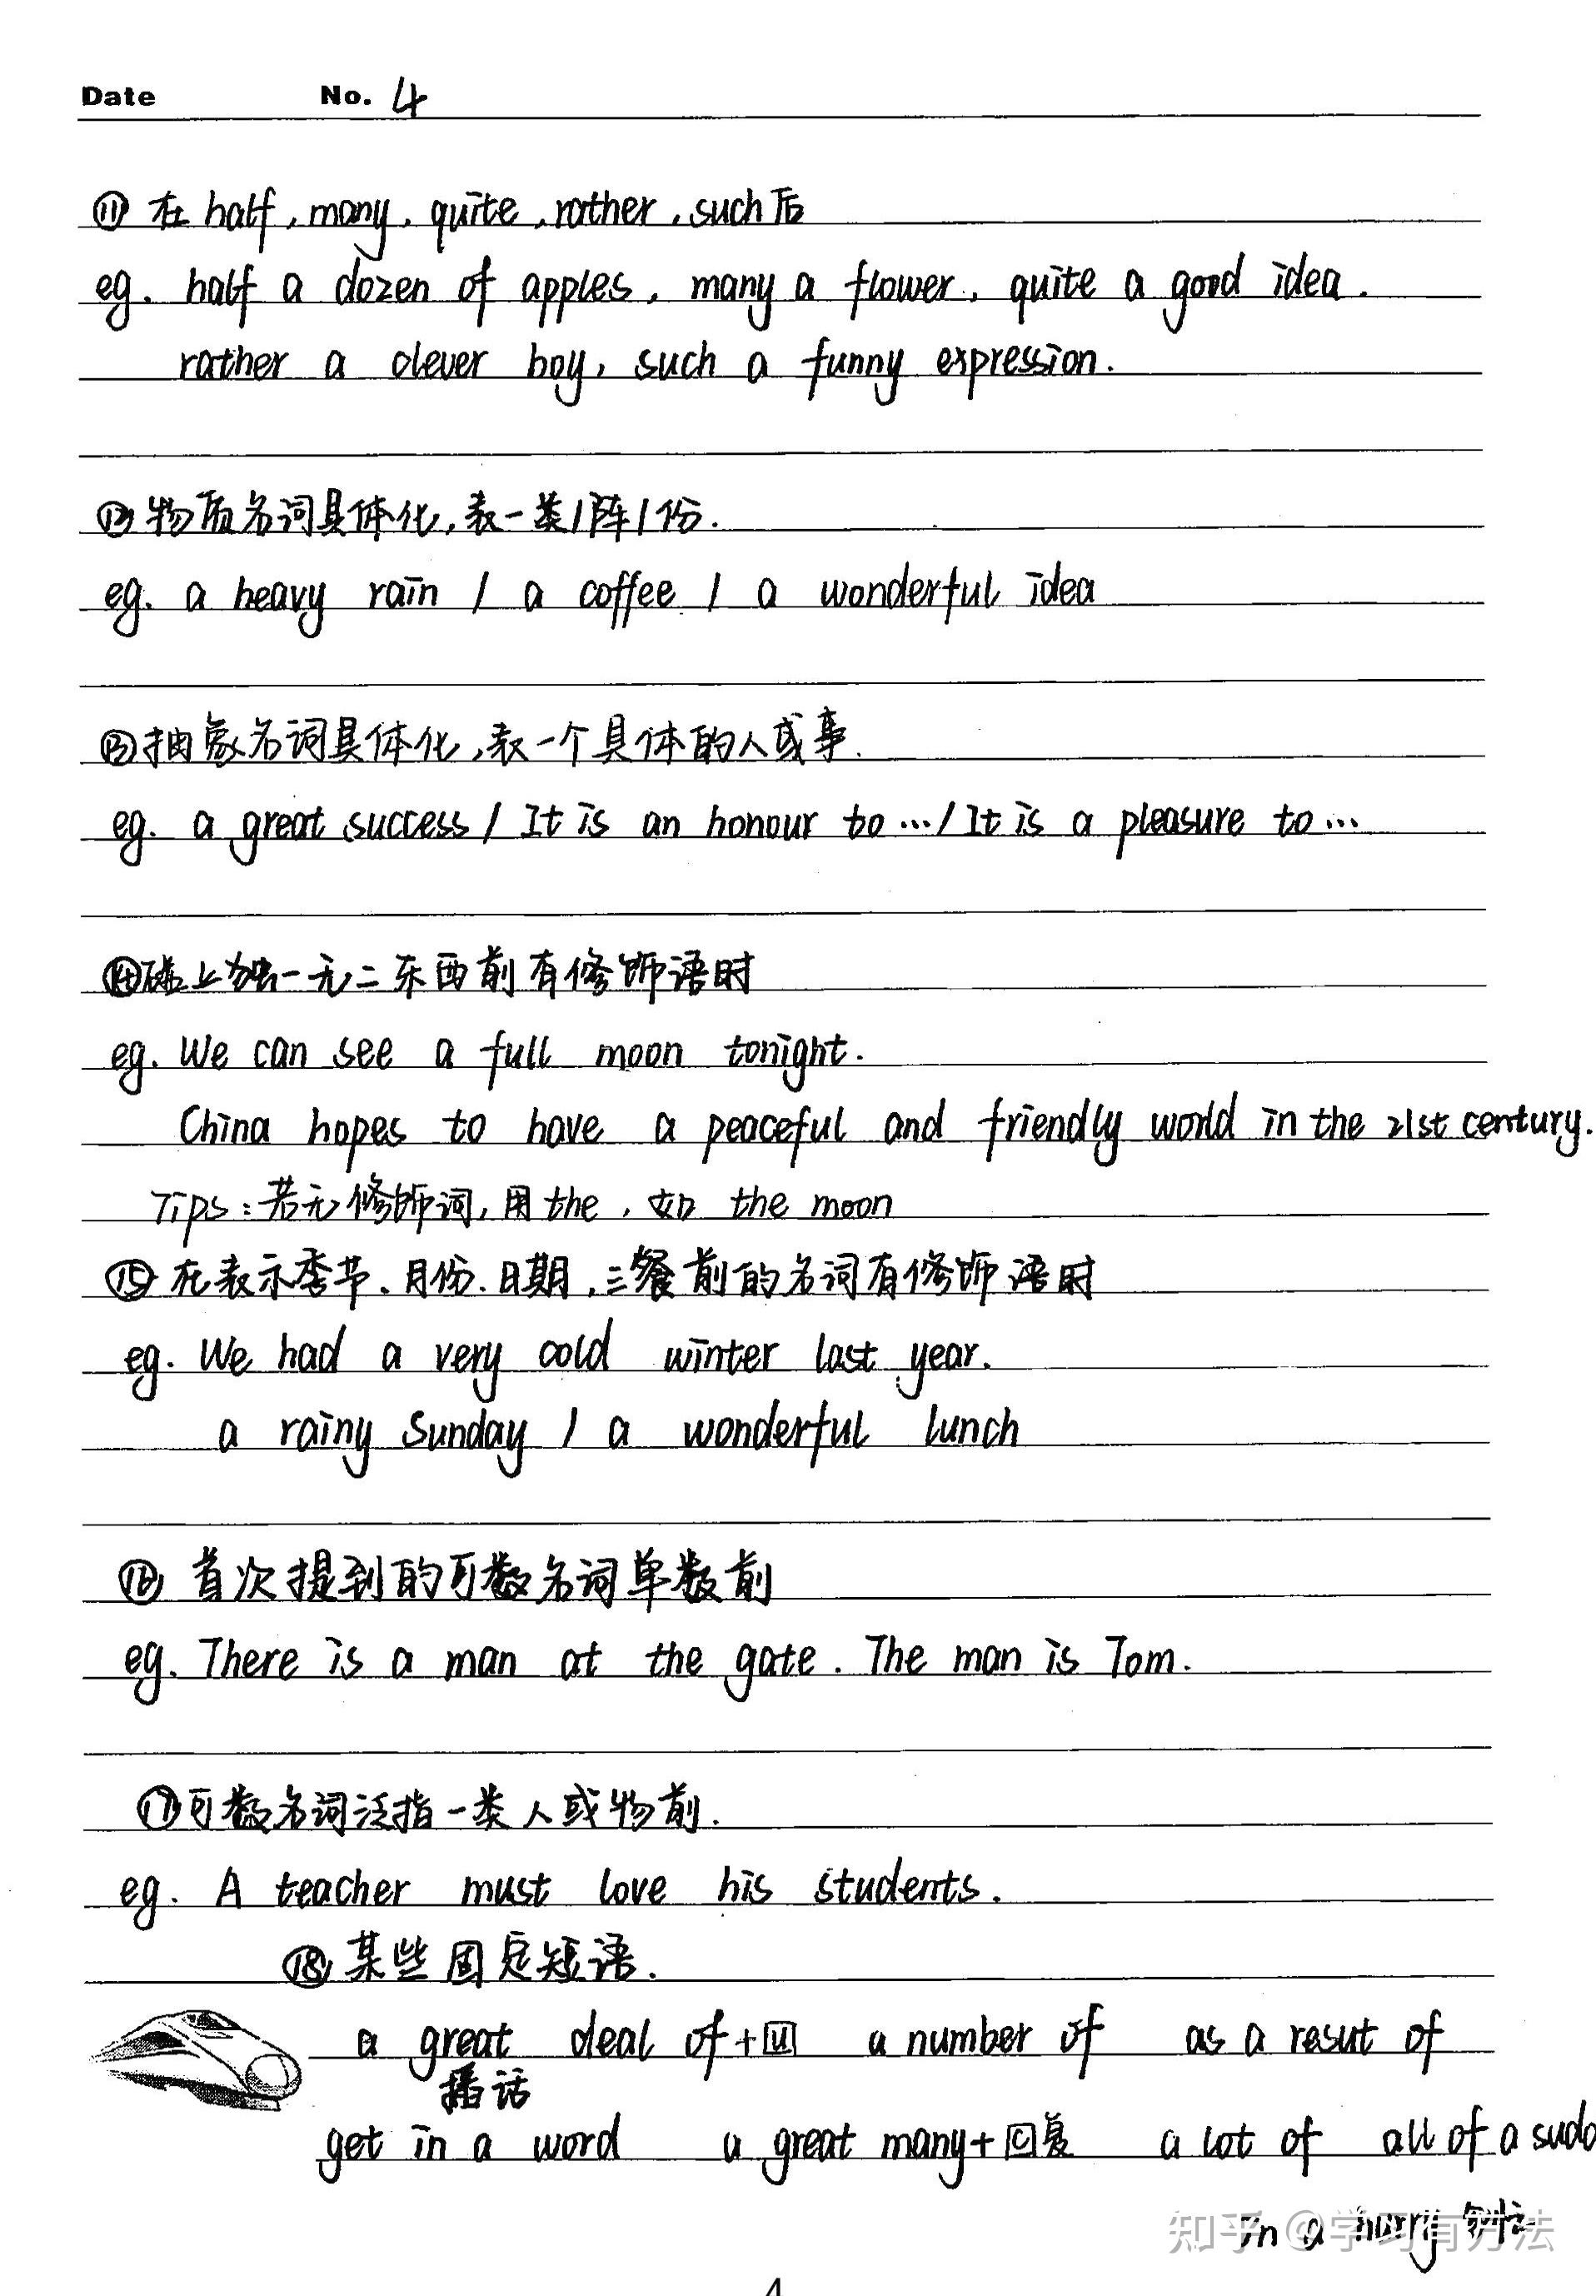 Date No. 4
⑪ 在 half, many, quite, rather, such 后
eg. half a dozen of apples, many a flower, quite a good idea.
rather a clever boy, such a funny expression.
⑫ 物质名词具体化, 表一类/阵/份.
eg. a heavy rain / a coffee / a wonderful idea
⑬ 抽象名词具体化, 表一个具体的人或事.
eg. a great success / It is an honour to … / It is a pleasure to …
⑭ 上独一无二东西前有修饰语时
eg. We can see a full moon tonight.
China hopes to have a peaceful and friendly world in the 21st century.
Tips: 若无修饰词, 用 the, 如 the moon
⑮ 在表示季节、月份、日期, 三餐前的名词有修饰语时
eg. We had a very cold winter last year.
a rainy Sunday / a wonderful lunch
⑯ 首次提到的可数名词单数前
eg. There is a man at the gate. The man is Tom.
⑰ 可数名词泛指一类人或物前.
eg. A teacher must love his students.
⑱ 某些固定短语.
a great deal of + U a number of as a resut of
播话
get in a word a great many + C复 a lot of all of a sudd
In a hurry
知乎 @学习有方法
4